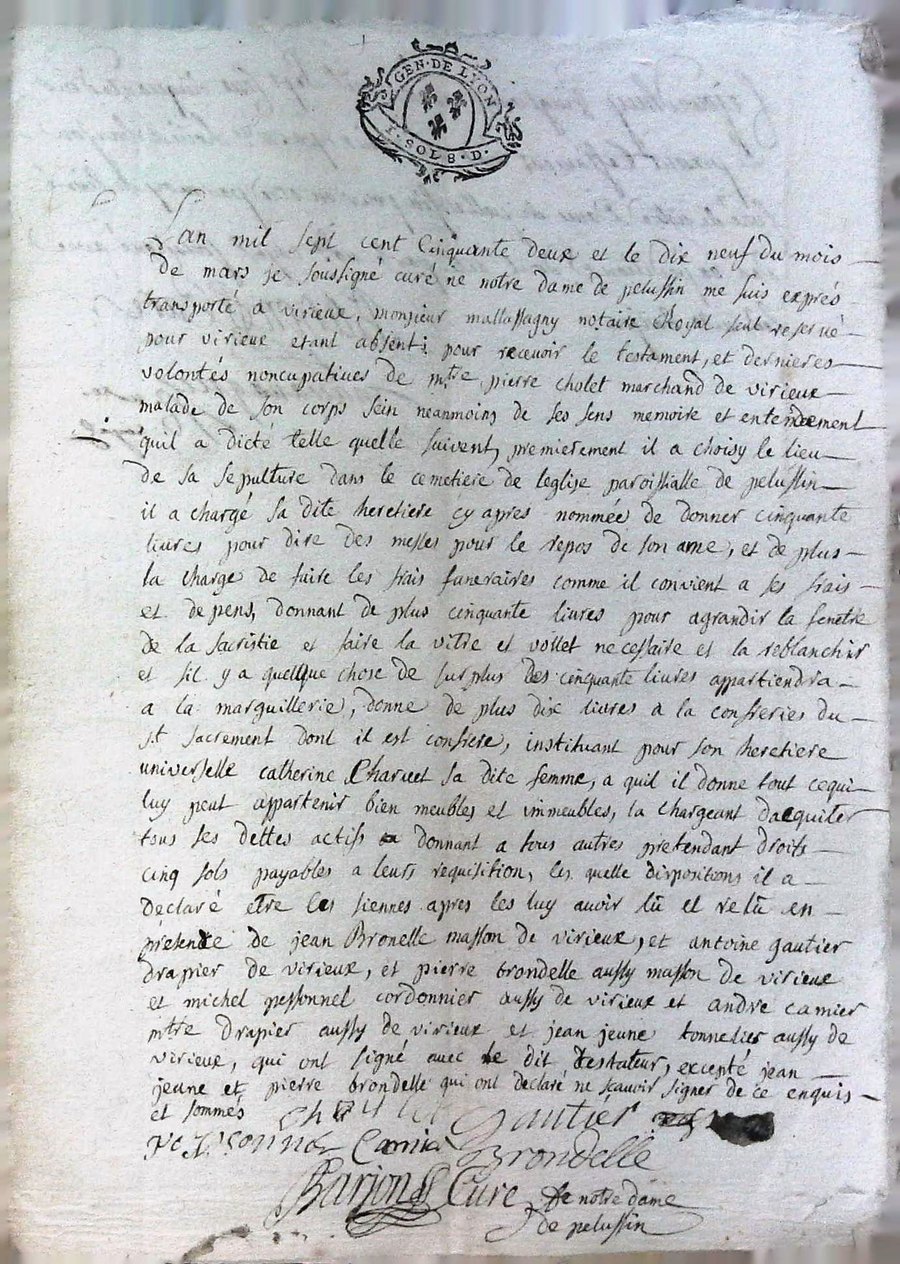 GEN·DE LYON
1·SOL 8·D·
Lan mil sept cent Cinquante deux et le dix neuf du mois
de mars je soussigné curé ne notre dame de pelussin me suis exprés
transporté a virieux, monsieur mallassagny notaire Royal seul reservé
pour virieux etant absent: pour recevoir le testament, et dernieres
volontés noncupatives de mtre pierre cholet marchand de virieux
malade de son corps sein neanmoins de ses sens memoire et entendement
quil a dicté telle quelle suivent, premierement il a choisy le lieu
de sa sepulture dans le cemetiere de leglise paroissialle de pelussin
il a chargé sa dite heretiere cy apres nommée de donner cinquante
livres pour dire des messes pour le repos de son ame, et de plus
la charge de faire les frais funeraires comme il convient a ses frais
et depens, donnant de plus cinquante livres pour agrandir la fenetre
de la sacristie et faire la vitre et vollet necessaire et la reblanchir
et sil y a quelque chose de surplus des cinquante livres appartiendra
a la marguillerie, donne de plus dix livres a la confreries du
st sacrement dont il est confrere, instituant pour son heretiere
universelle catherine Charvet sa dite femme, a quil il donne tout cequi
luy peut appartenir bien meubles et immeubles, la chargeant dacquiter
tous ses dettes actifs donnant a tous autres pretendant droits
cinq sols payables a leurs requisition, les quelle dispositions il a
declaré etre les siennes apres les luy avoir lû et relû en
presence de jean Bronelle masson de virieux, et antoine gautier
drapier de virieux, et pierre brondelle aussy masson de virieux
et michel pessonnel cordonnier aussy de virieux et andre camier
mtre drapier aussy de virieux et jean jeune tonnelier aussy de
virieux, qui ont signé avec le dit testateur, excepté jean
jeune et pierre brondelle qui ont declaré ne sçavoir signer de ce enquis
et sommés
Gautier
Camier Brondelle
Barjon Curé de notre dame
de pelussin